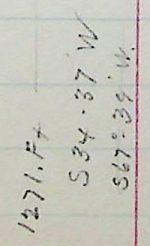 1271. Ft
S 34·37' W
S 67°·39' W.